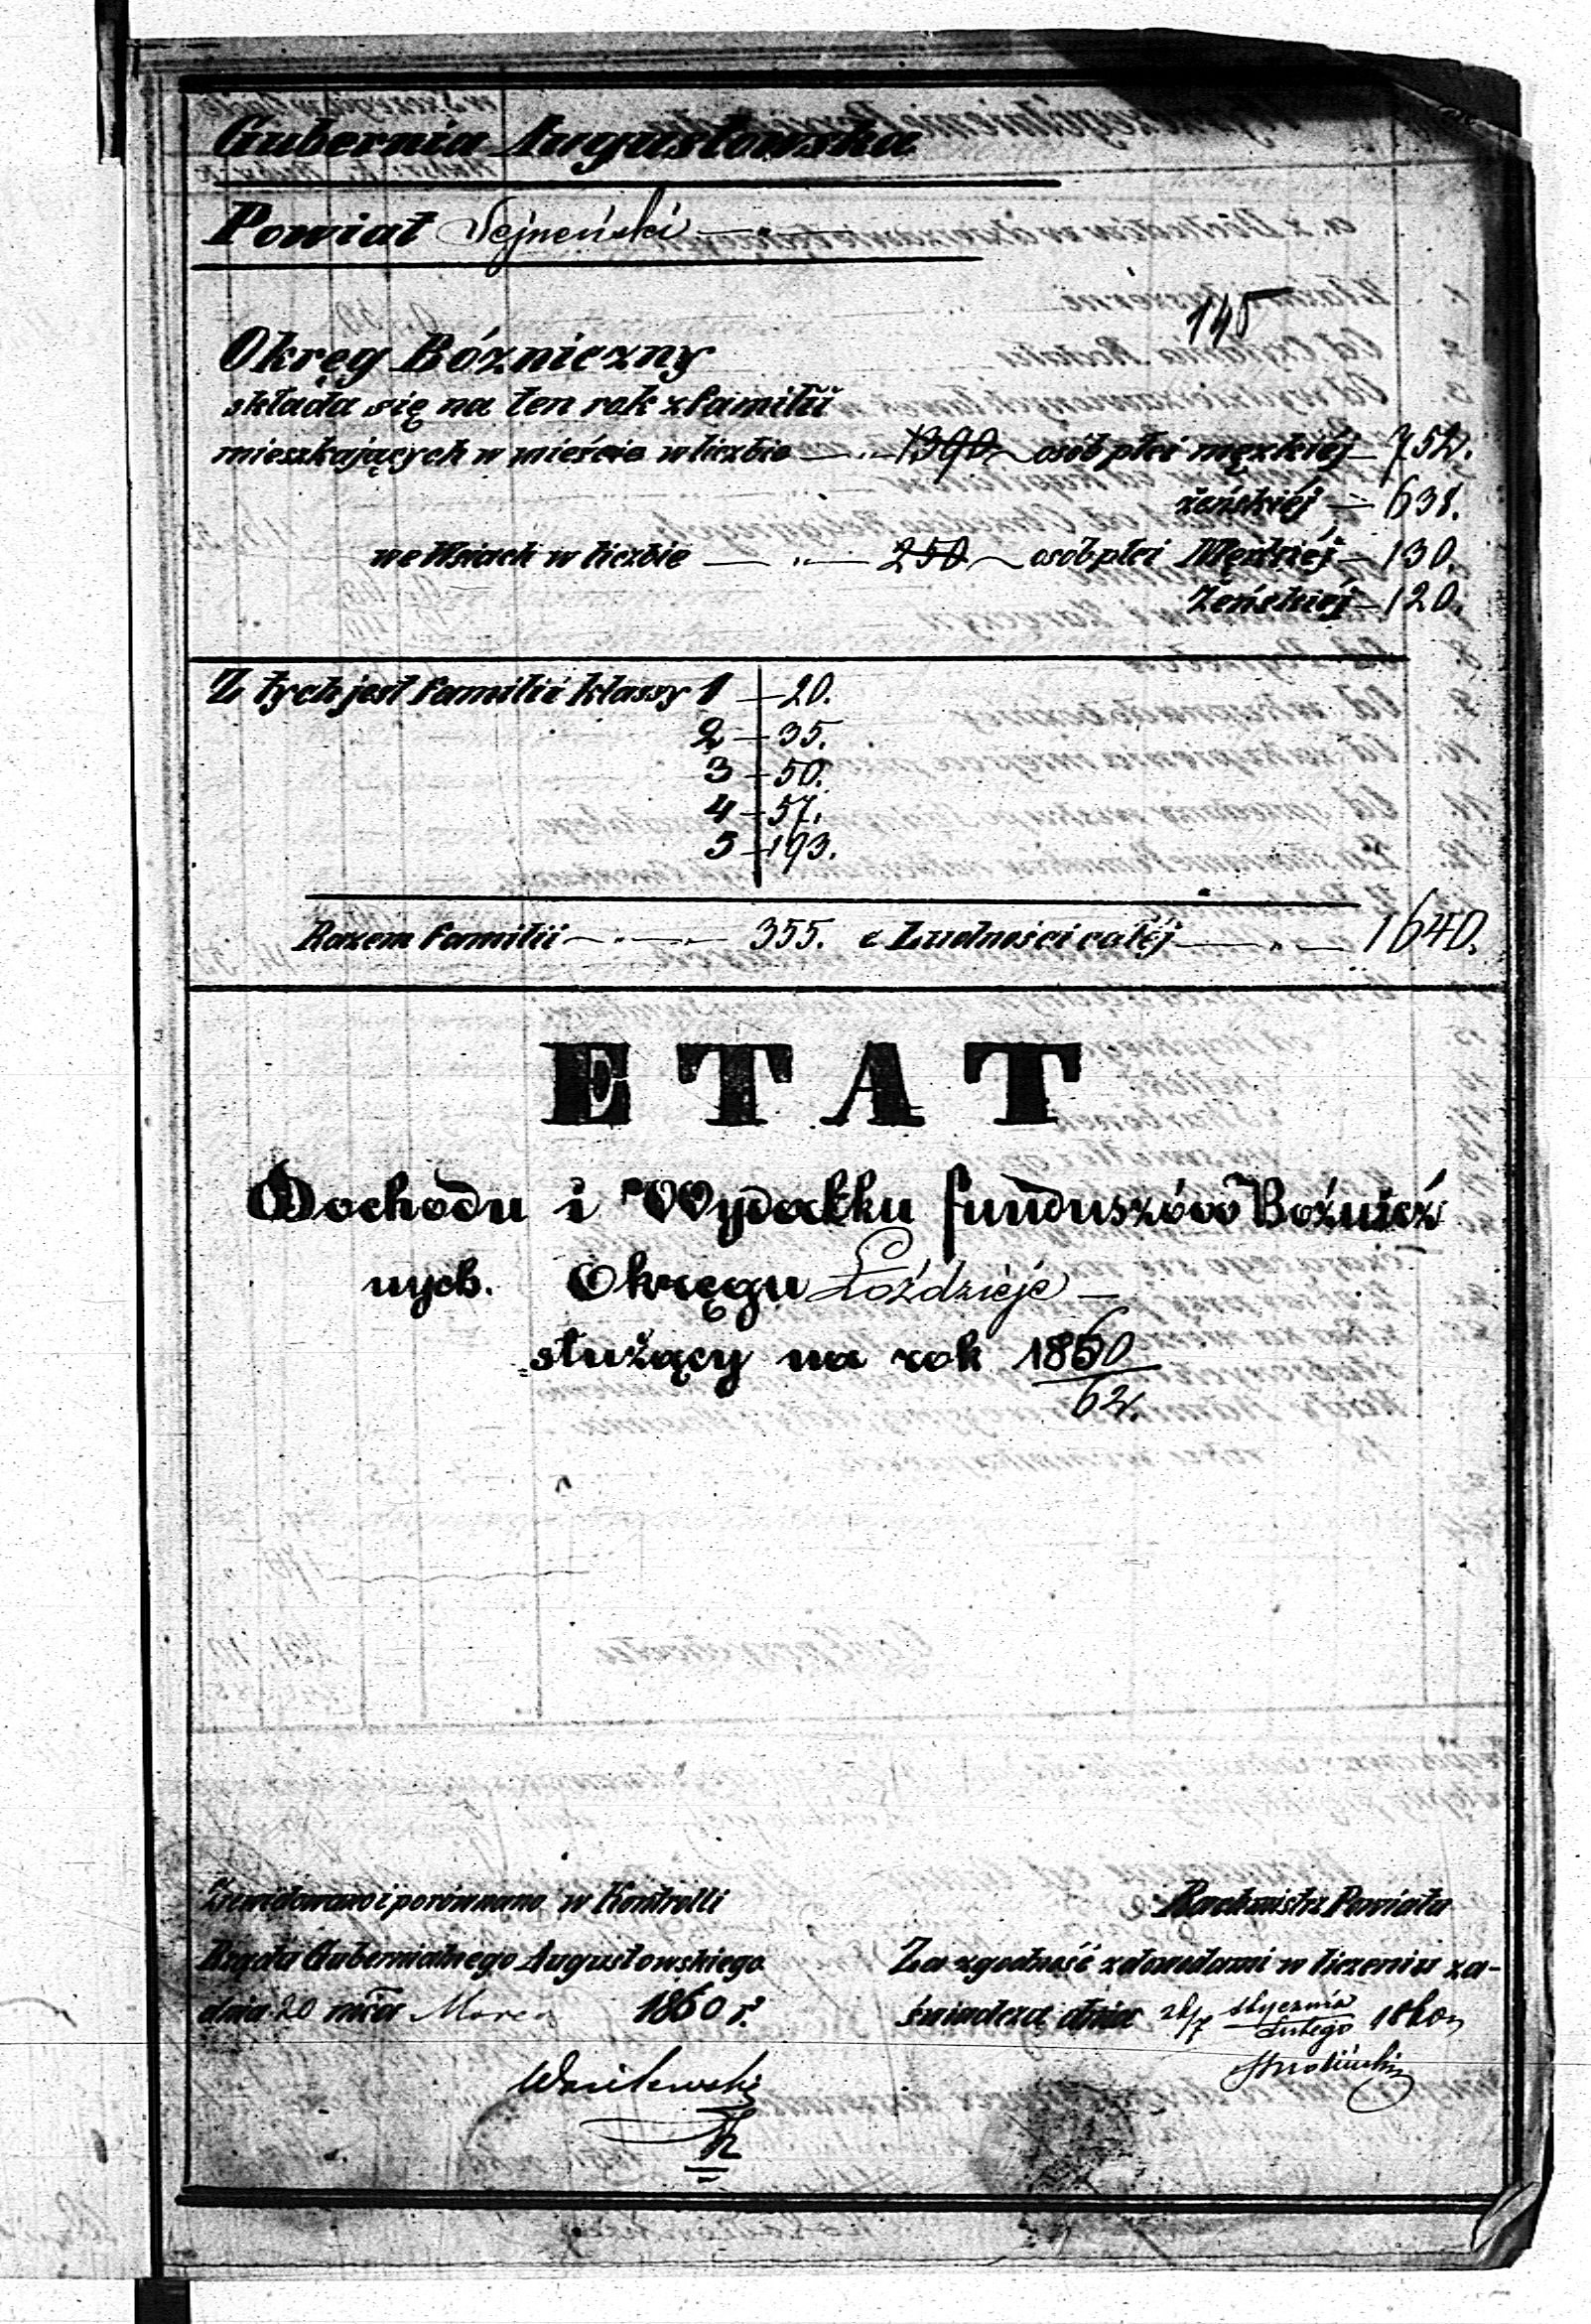 Gubernia Augustowska
Powiat Sejneński
145
Okręg Bóżniczny
składa się na ten rok z familii
mieszkających w mieście w liczbie — 1390 osób płci męzkiéj 752.
żeńskiéj — 638.
we Wsiach w liczbie — 250 osób płci Męzkiéj — 130.
Żeńskiéj — 120.
Z tych jest familii klassy 1 — 20.
2 — 35.
3 — 50.
4 — 57.
5 — 193.
Razem familii — 355. a Ludności całéj — 1640.
ETAT
Dochodu i Wydatku funduszów Bożnicz
nych. Okręgu Łoździeje —
służący na rok 1860
62.
Zrewidowano i porównano w Kontrolli
Rządu Gubernialnego Augustowskiego
dnia 20 mca Marca 1860 r.
Wasilewski
Rachmistrz Powiatu
Za zgodność z dowodami w liczeniu za-
świadcza dnia 26/7 Stycznia
Lutego 1860